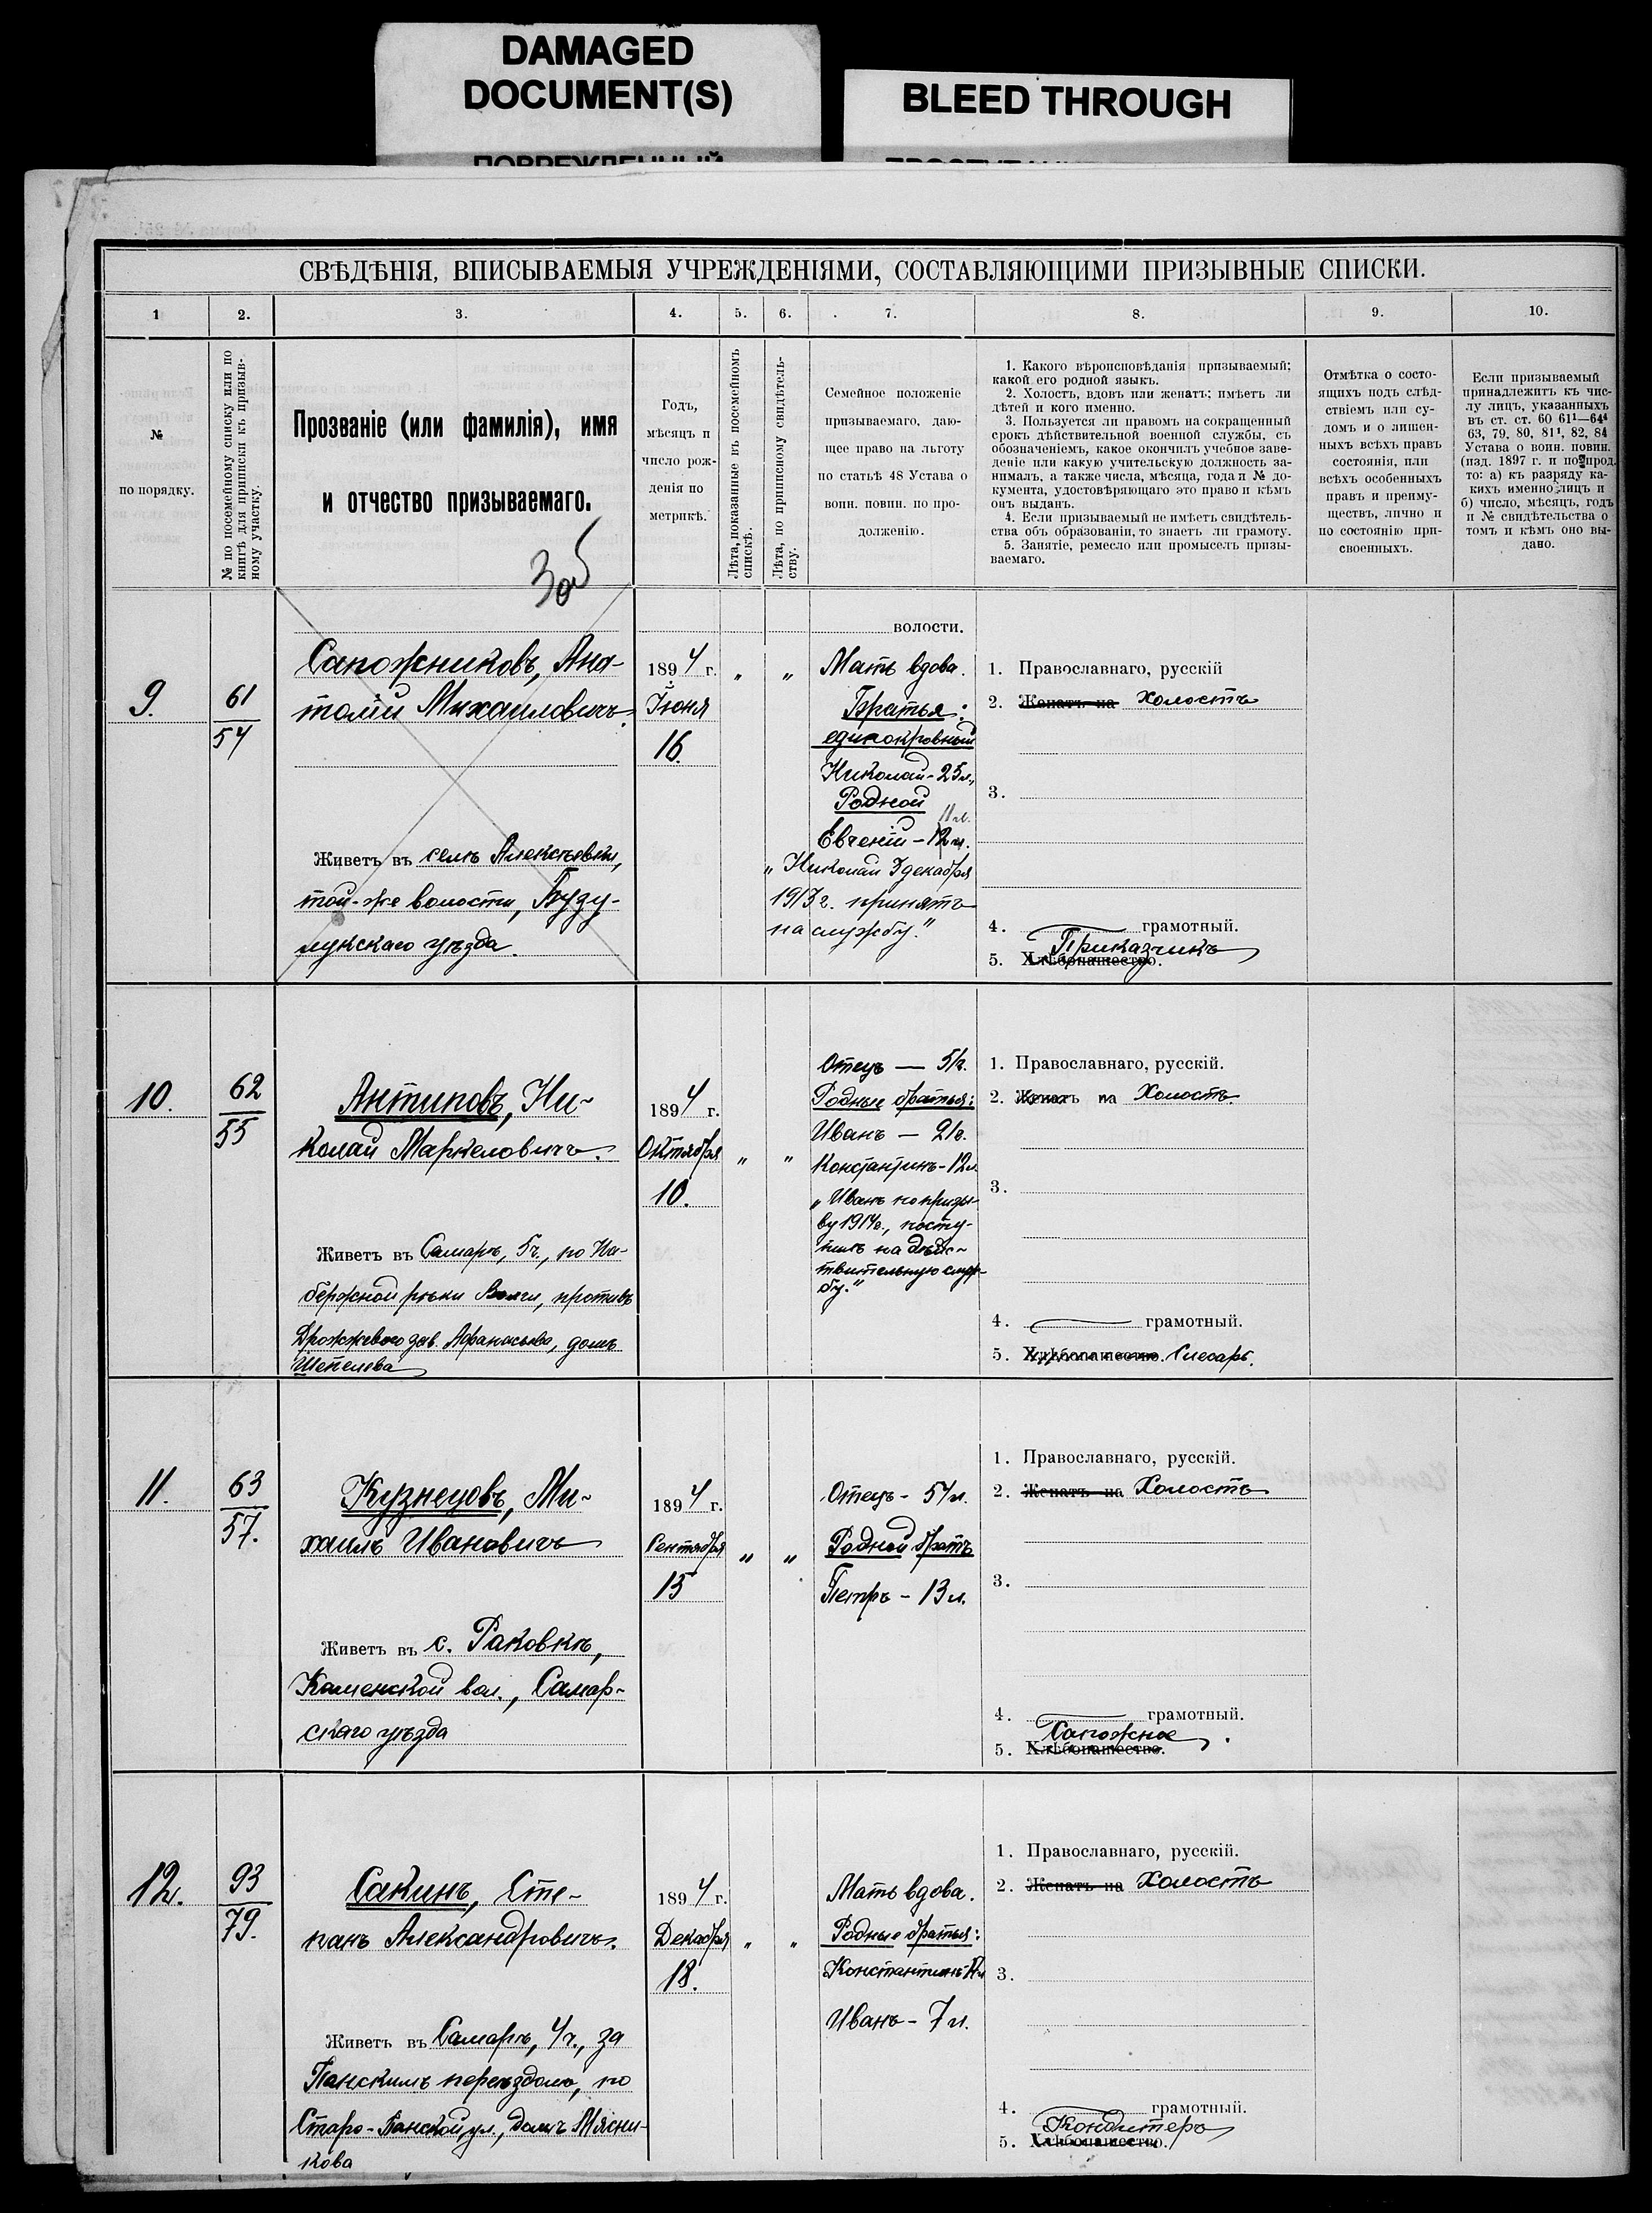 DAMAGED
DOCUMENT(S)
BLEED THROUGH
СВѢДѢНІЯ, ВПИСЫВАЕМЫЯ УЧРЕЖДЕНІЯМИ, СОСТАВЛЯЮЩИМИ ПРИЗЫВНЫЕ СПИСКИ.
1 2. 3. 4. 5. 6. 7. 8. 9. 10.
№
по порядку.
№ по посемейному списку или по
книгѣ для приписки къ призыв-
ному участку.
Прозваніе (или фамилія), имя
и отчество призываемаго.
Годъ,
мѣсяцъ и
число рож-
денія по
метрикѣ.
Лѣта, показанные въ посемейномъ
спискѣ.
Лѣта, по приписному свидѣтель-
ству.
Семейное положеніе
призываемаго, даю-
щее право на льготу
по статьѣ 48 Устава о
воин. повин. по про-
долженію.
1. Какого вѣроисповѣданія призываемый;
какой его родной языкъ.
2. Холостъ, вдовъ или женатъ; имѣетъ ли
дѣтей и кого именно.
3. Пользуется ли правомъ на сокращенный
срокъ дѣйствительной военной службы, съ
обозначеніемъ, какое окончилъ учебное заве-
деніе или какую учительскую должность за-
нималъ, а также числа, мѣсяца, года и № до-
кумента, удостовѣряющаго это право и кѣмъ
онъ выданъ.
4. Если призываемый не имѣетъ свидѣтель-
ства объ образованіи, то знаетъ ли грамоту.
5. Занятіе, ремесло или промыселъ призы-
ваемаго.
Отмѣтка о состо-
ящихъ подъ слѣд-
ствіемъ или су-
домъ и о лишен-
ныхъ всѣхъ правъ
состоянія, или
всѣхъ особенныхъ
правъ и преиму-
ществъ, лично и
по состоянію при-
своенныхъ.
Если призываемый
принадлежитъ къ чис-
лу лицъ, указанныхъ
въ ст. ст. 60 61¹—64⁴
63, 79, 80, 81¹, 82, 84
Устава о воин. повин.
(изд. 1897 г. и по прод.
то: а) къ разряду ка-
кихъ именно лицъ и
б) число, мѣсяцъ, годъ
и № свидѣтельства о
томъ и кѣмъ оно вы-
дано.
волости.
9.
61
54
Сапожниковъ, Ана-
толій Михаиловичъ.
Живетъ въ селѣ Алексѣевкѣ,
той-же волости, Бузу-
лукскаго уѣзда.
1894 г.
Іюня
16.
" "
Мать вдова.
Братья:
единокровный
Николай - 25 л.,
Родной
11 л.
Евгеній - 12 л.
„Николай 3 декабря
1913 г. принятъ
на службу."
1. Православнаго, русскій
2. Женатъ на Холостъ
3.
4. грамотный.
5. Хлѣбопашество. Приказчикъ
10.
62
55
Антиповъ, Ни-
колай Маркеловичъ.
Живетъ въ Самарѣ, 5 ч., по На-
бережной рѣки Волги, противъ
Дрожжевого зав. Афанасьева, домъ
Шепелева
1894 г.
Октября
10.
" "
Отецъ — 51 г.
Родные братья:
Иванъ — 21 г.
Константинъ - 12 л.
„Иванъ по призы-
ву 1914 г., посту-
пилъ на дѣйс-
твительную служ-
бу."
1. Православнаго, русскій.
2. Женатъ на Холостъ.
3.
4. грамотный.
5. Хлѣбопашество. Слесарь.
11.
63
57.
Кузнецовъ, Ми-
хаилъ Ивановичъ
Живетъ въ с. Раковкѣ,
Каменской вол., Самар-
скаго уѣзда
1894 г.
Сентября
15
" "
Отецъ - 54 л.
Родной братъ
Петръ - 13 л.
1. Православнаго, русскій.
2. Женатъ на Холостъ
3.
4. грамотный.
5. Хлѣбопашество. Сапожное
12.
93
79.
Сакинъ, Сте-
панъ Александровичъ.
Живетъ въ Самарѣ, 4 ч., за
Панскимъ переѣздомъ, по
Старо-Панской ул., домъ Мясни-
кова
1894 г.
Декабря
18.
" "
Мать вдова.
Родные братья:
Константинъ
Иванъ - 7 л.
1. Православнаго, русскій.
2. Женатъ на Холостъ
3.
4. грамотный.
5. Хлѣбопашество. Кондитеръ